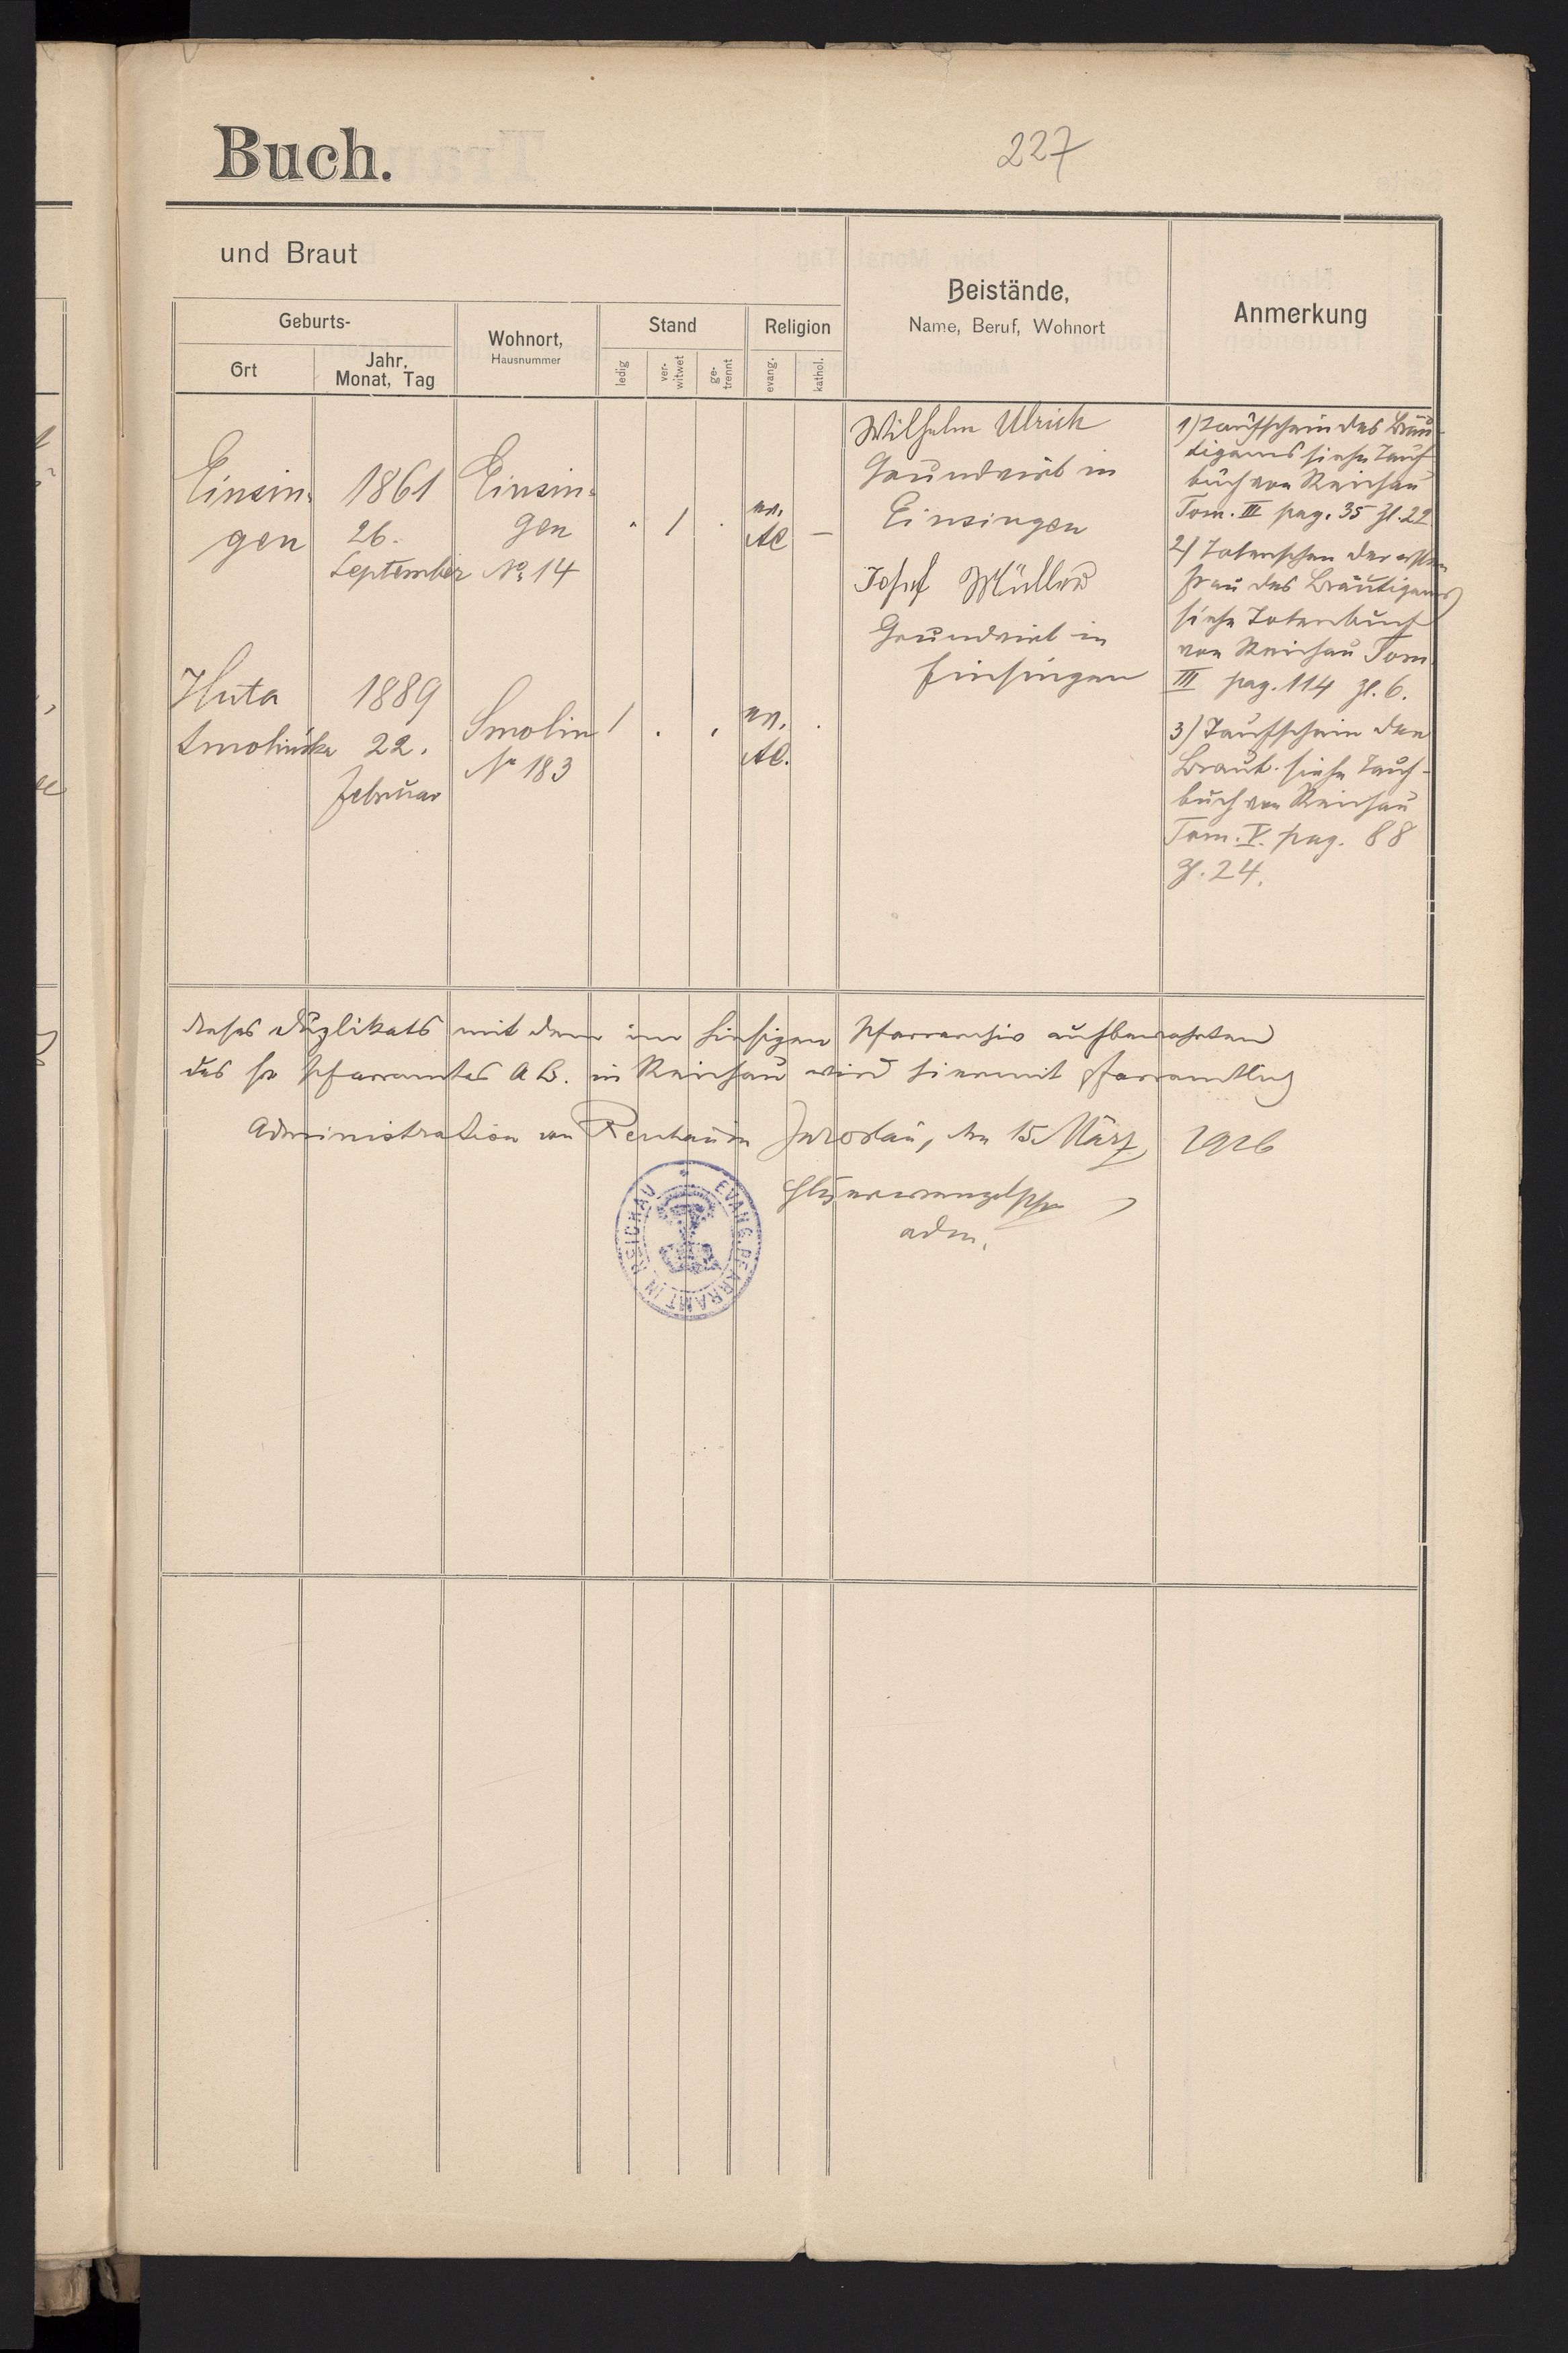 Buch.
227
und Braut
Geburts-
Ort
Jahr, Monat, Tag
Wohnort,
Hausnummer
Stand
ledig
ver-
witwet
ge-
trennt
Religion
evang.
kathol.
Beistände,
Name, Beruf, Wohnort
Anmerkung
Einsin-
gen
1861
26.
September
Einsin-
gen
No 14
1
ev.
AC
—
Wilhelm Ulrich
Grundwirt in
Einsingen
Josef Müller
Grundwirt in
Einsingen
1) Taufschein des Bräu-
tigams siehe Tauf
buch von Reichau
Tom. III pag. 35 Zl. 22
2) Totenschein der ersten
Frau des Bräutigams
siehe Totenbuch
von Reichau Tom.
III pag. 114 Zl. 6.
3) Taufschein der
Braut siehe Tauf-
buch von Reichau
Tom. V. pag. 88
Zl. 24.
Huta
Smolinska
1889
22.
Februar
Smolin
No 183
1
ev.
AC.
dieses Duplikats mit dem im hiesigen Pfarrarchiv aufbewahrten
des Pfarramtes A B. in Reichau wird hiermit pfarramtlich
Administration von Reichau in Jaroslau, den 15. März 1926
adm.
EVANG. PFARRAMT IN REICHAU